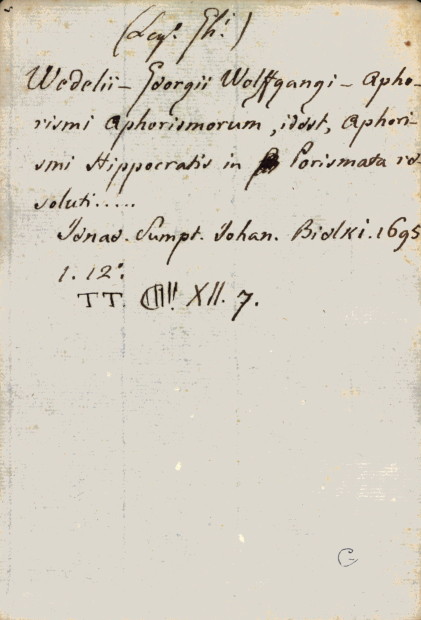 (Leg. Gh.)
Wedelii - Georgii Wolffgangi - Apho-
rismi Aphorismorum, idest, Aphori-
smi Hippocratis in Porismata re-
soluti.....
Ienae. Sumpt. Iohan. Bielki. 1695
1. 12°.
TT. XII. 7.
C